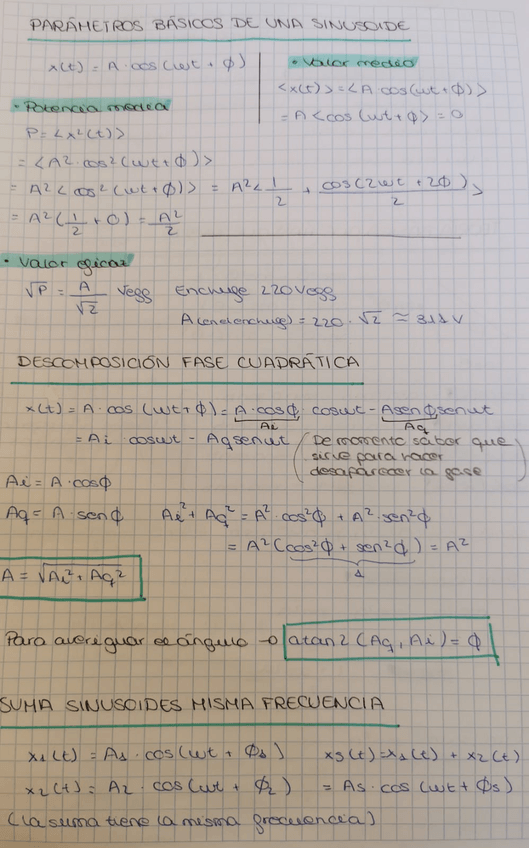 PARÁMETROS BÁSICOS DE UNA SINUSOIDE
x(t) = A · cos(ωt + ϕ)
• Potencia media
P = <x²(t)>
= <A² · cos²(ωt + ϕ)>
= A² <cos²(ωt + ϕ)> = A² < 1/2 + cos(2ωt + 2ϕ)/2 >
= A² (1/2 + 0) = A²/2
• Valor medio
<x(t)> = <A cos(ωt + ϕ)>
= A <cos(ωt + ϕ> = 0
• Valor eficaz
√P = A/√2 Veff Enchufe 220 Veff
A(en el enchufe) = 220 · √2 ≈ 311 V
DESCOMPOSICIÓN FASE CUADRÁTICA
x(t) = A · cos (ωt + ϕ) = A · cosϕ cosωt - Asenϕsenωt
Ai Aq
= Ai · cosωt - Aqsenωt (De momento saber que
sirve para hacer
desaparecer la fase)
Ai = A · cosϕ
Aq = A · senϕ Ai² + Aq² = A² · cos²ϕ + A² · sen²ϕ
= A² (cos²ϕ + sen²ϕ) = A²
1
A = √Ai² + Aq²
Para averiguar el ángulo → atan2 (Aq, Ai) = ϕ
SUMA SINUSOIDES MISMA FRECUENCIA
x1(t) = A1 · cos(ωt + ϕ1) xs(t) = x1(t) + x2(t)
x2(t) = A2 · cos(ωt + ϕ2) = As · cos(ωt + ϕs)
(La suma tiene la misma frecuencia)